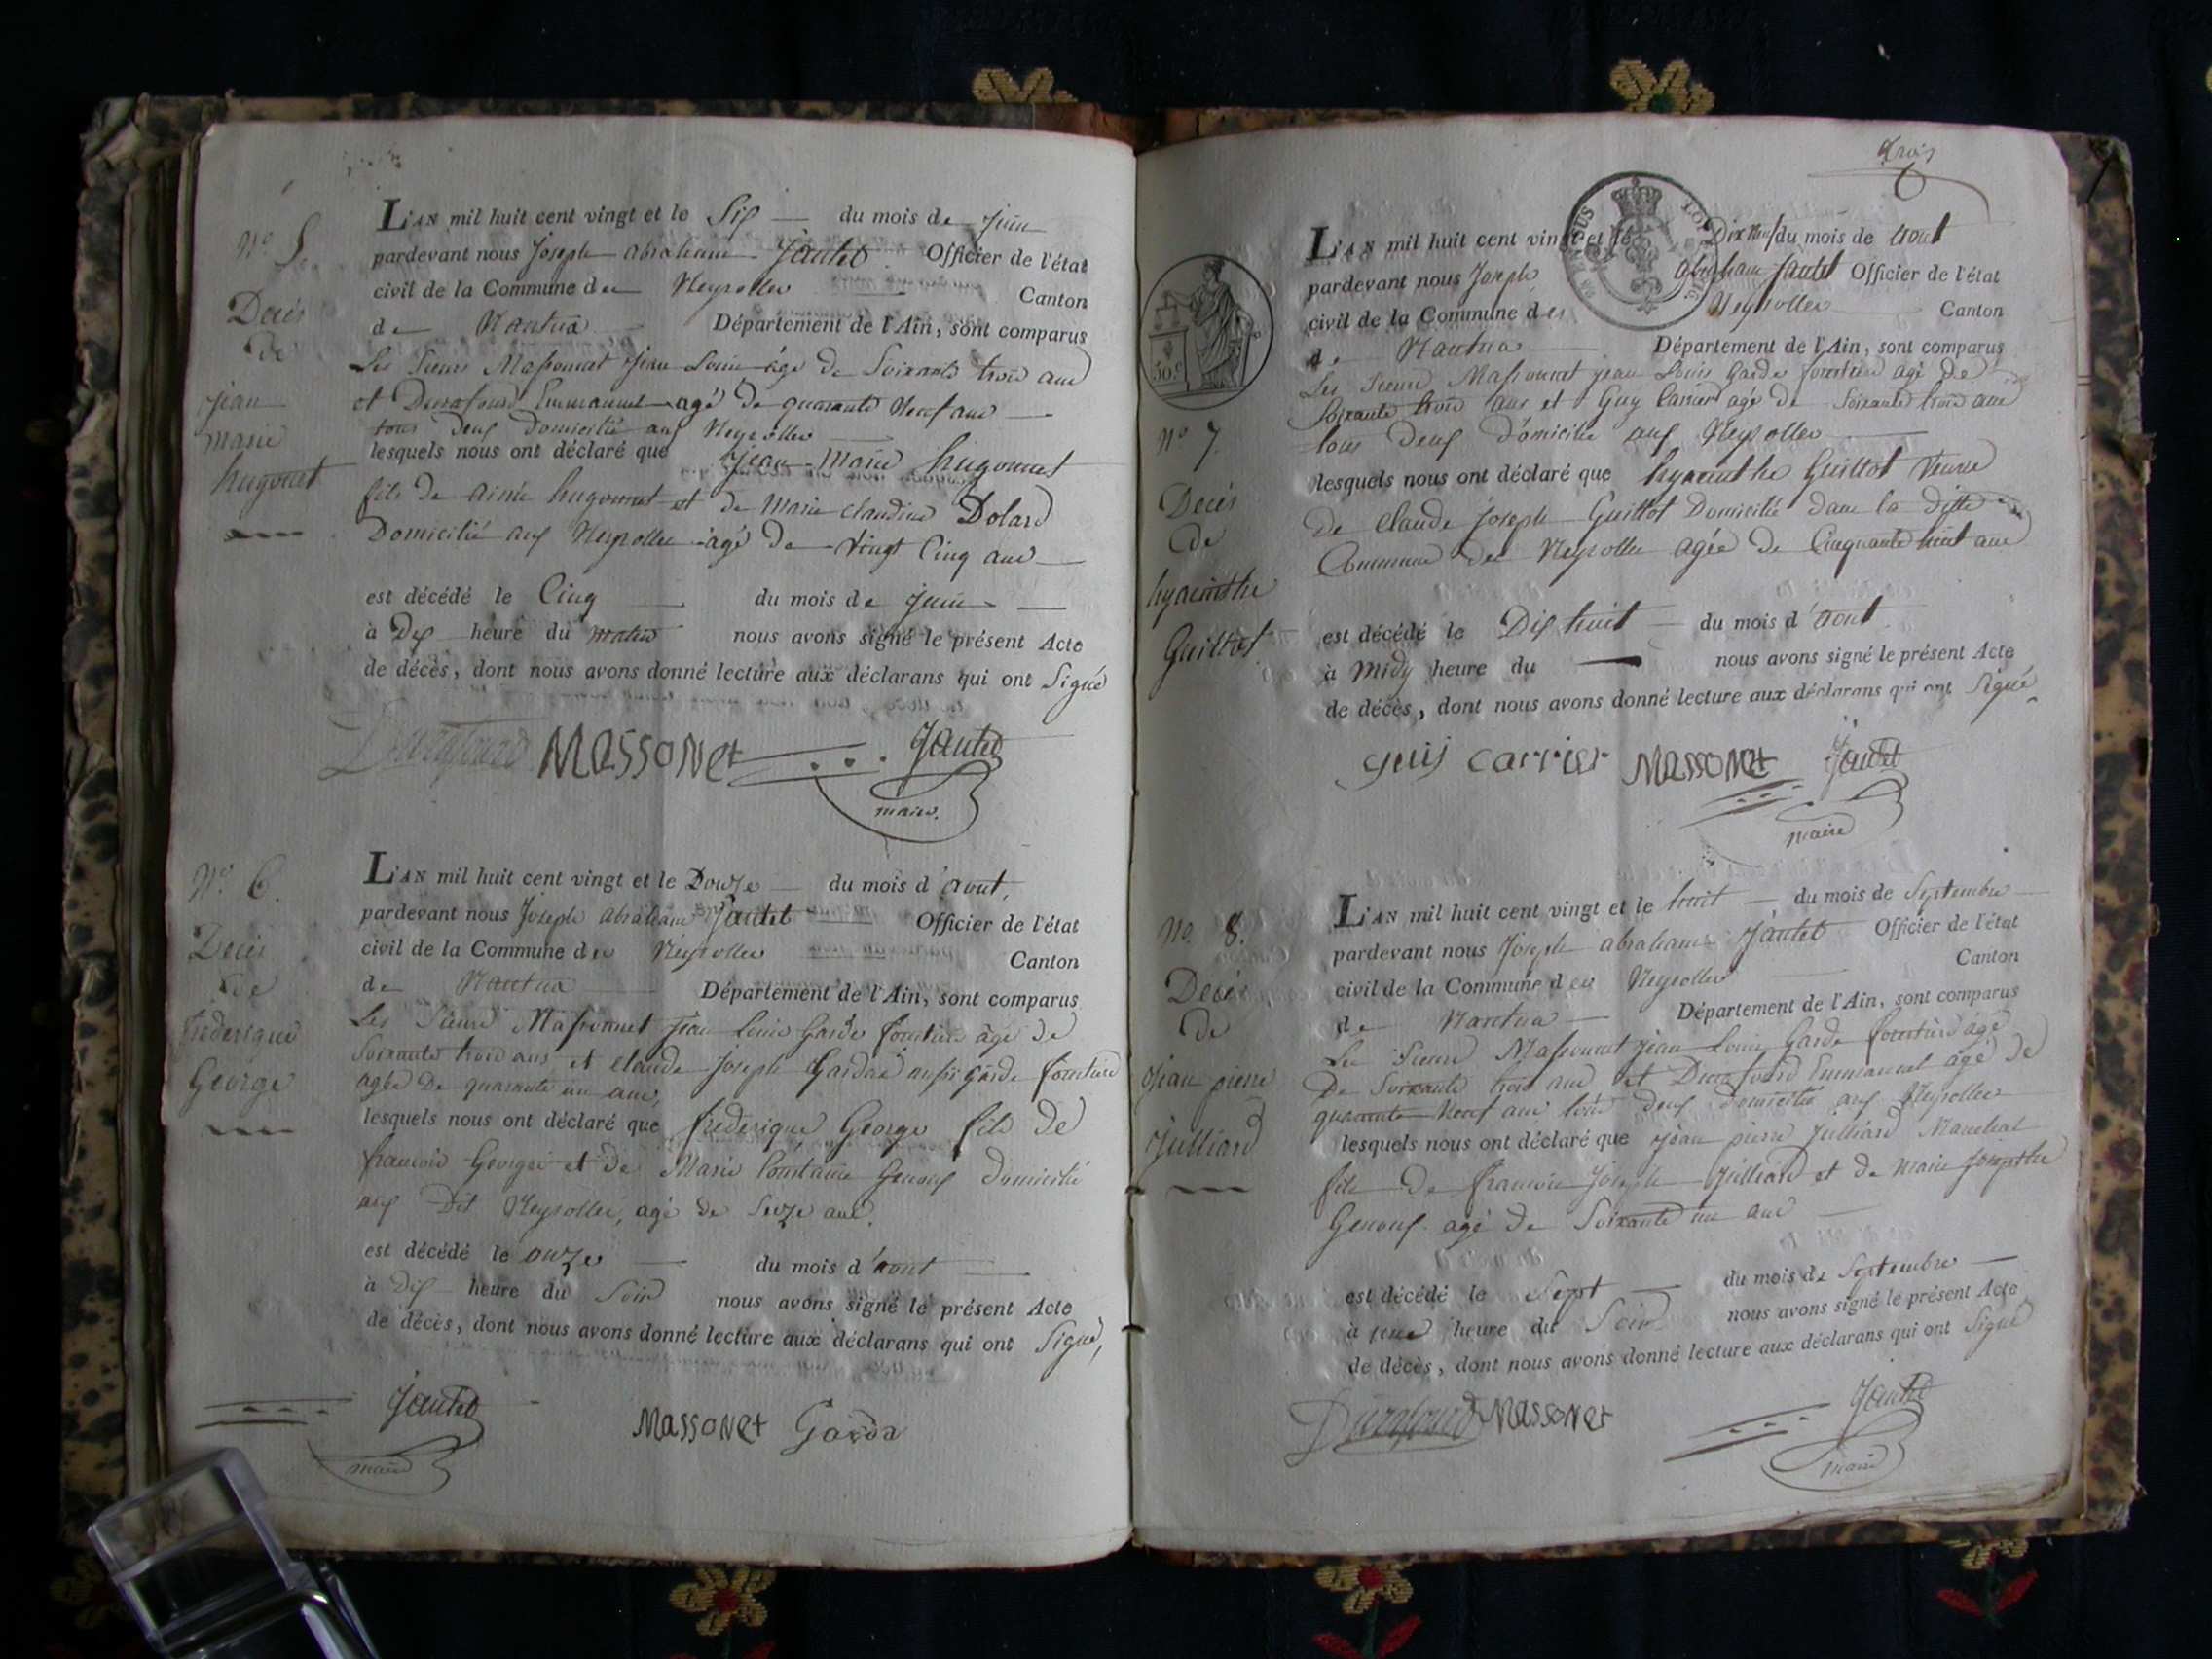 N.º 5.
Decés
de
jean
marie
hugonet
L'AN mil huit cent vingt et le Six du mois de juin
pardevant nous Joseph abraham Jantet Officier de l'état
civil de la Commune des Neyrolles Canton
de Nantua Département de l'Ain, sont comparus
Les Sieurs Massonnet jean Louis agé de Soixante trois ans
et Durafourd Emmanuel agé de quarante Neuf ans
tous Deux Domicilié aux Neyrolles
lesquels nous ont déclaré que jean-marie hugonnet
fils de aimé hugonnet et de marie claudine Dolard
Domicilié aux Neyrolles agé de vingt Cinq ans
est décédé le Cinq du mois de juin
à Dix heure du matin nous avons signé le présent Acte
de décès, dont nous avons donné lecture aux déclarans qui ont Signé
Durafourd Massonet Jantet
maire.
N.º 6.
Decés
de
frederique
George
L'AN mil huit cent vingt et le Douze du mois d'aout,
pardevant nous Joseph abraham Jantet Officier de l'état
civil de la Commune des Neyrolles Canton
de Nantua Département de l'Ain, sont comparus
Les Sieurs Massonnet jean Louis Garde forestier agé de
Soixante trois ans et claude Joseph Gardas aussi Garde forestier
agée de quarante un ans,
lesquels nous ont déclaré que frederique George fils de
francois George et de Marie Genoux domicilié
aux Dit Neyrolles, agé de Seize ans.
est décédé le onze du mois d'aout
à dix heure du Soir nous avons signé le présent Acte
de décès, dont nous avons donné lecture aux déclarans qui ont Signé,
Jantet Massonet Garda
maire
trois
N.º 7.
Decés
de
hyacinthe
Guillot
L'AN mil huit cent vingt et le Dix Neuf du mois de aout
pardevant nous Joseph abraham Jantet Officier de l'état
civil de la Commune des Neyrolles Canton
de Nantua Département de l'Ain, sont comparus
Les Sieurs Massonnet jean Louis Garde forestier agé de
Soixante trois ans et Guy Carrier agé de Soixante trois ans
tous deux domicilié aux Neyrolles
lesquels nous ont déclaré que hyacinthe Guillot Veuve
de claude joseph Guillot Domicilié dans la ditte
Commune des Neyrolles agée de Cinquante huit ans
est décédé le Dix huit du mois d'aout
à midy heure du nous avons signé le présent Acte
de décès, dont nous avons donné lecture aux déclarans qui ont Signé
guij carrier Massonet Jantet
maire
N.º 8.
Decés
de
Jean pierre
Julliard
L'AN mil huit cent vingt et le huit du mois de Septembre
pardevant nous Joseph abraham Jantet Officier de l'état
civil de la Commune des Neyrolles Canton
de Nantua Département de l'Ain, sont comparus
Les Sieurs Massonnet jean Louis Garde forestier agé
De Soixante trois ans et Durafourd Emmanuel agé de
quarante Neuf ans tous deux domicilié aux Neyrolles
lesquels nous ont déclaré que jean pierre Julliard Marechal
fils de francois Joseph Julliard et de marie josephte
Genoux agé de Soixante un ans
est décédé le Sept du mois de Septembre
à heure du Soir nous avons signé le présent Acte
de décès, dont nous avons donné lecture aux déclarans qui ont Signé
Durafourd Massonet Jantet
maire